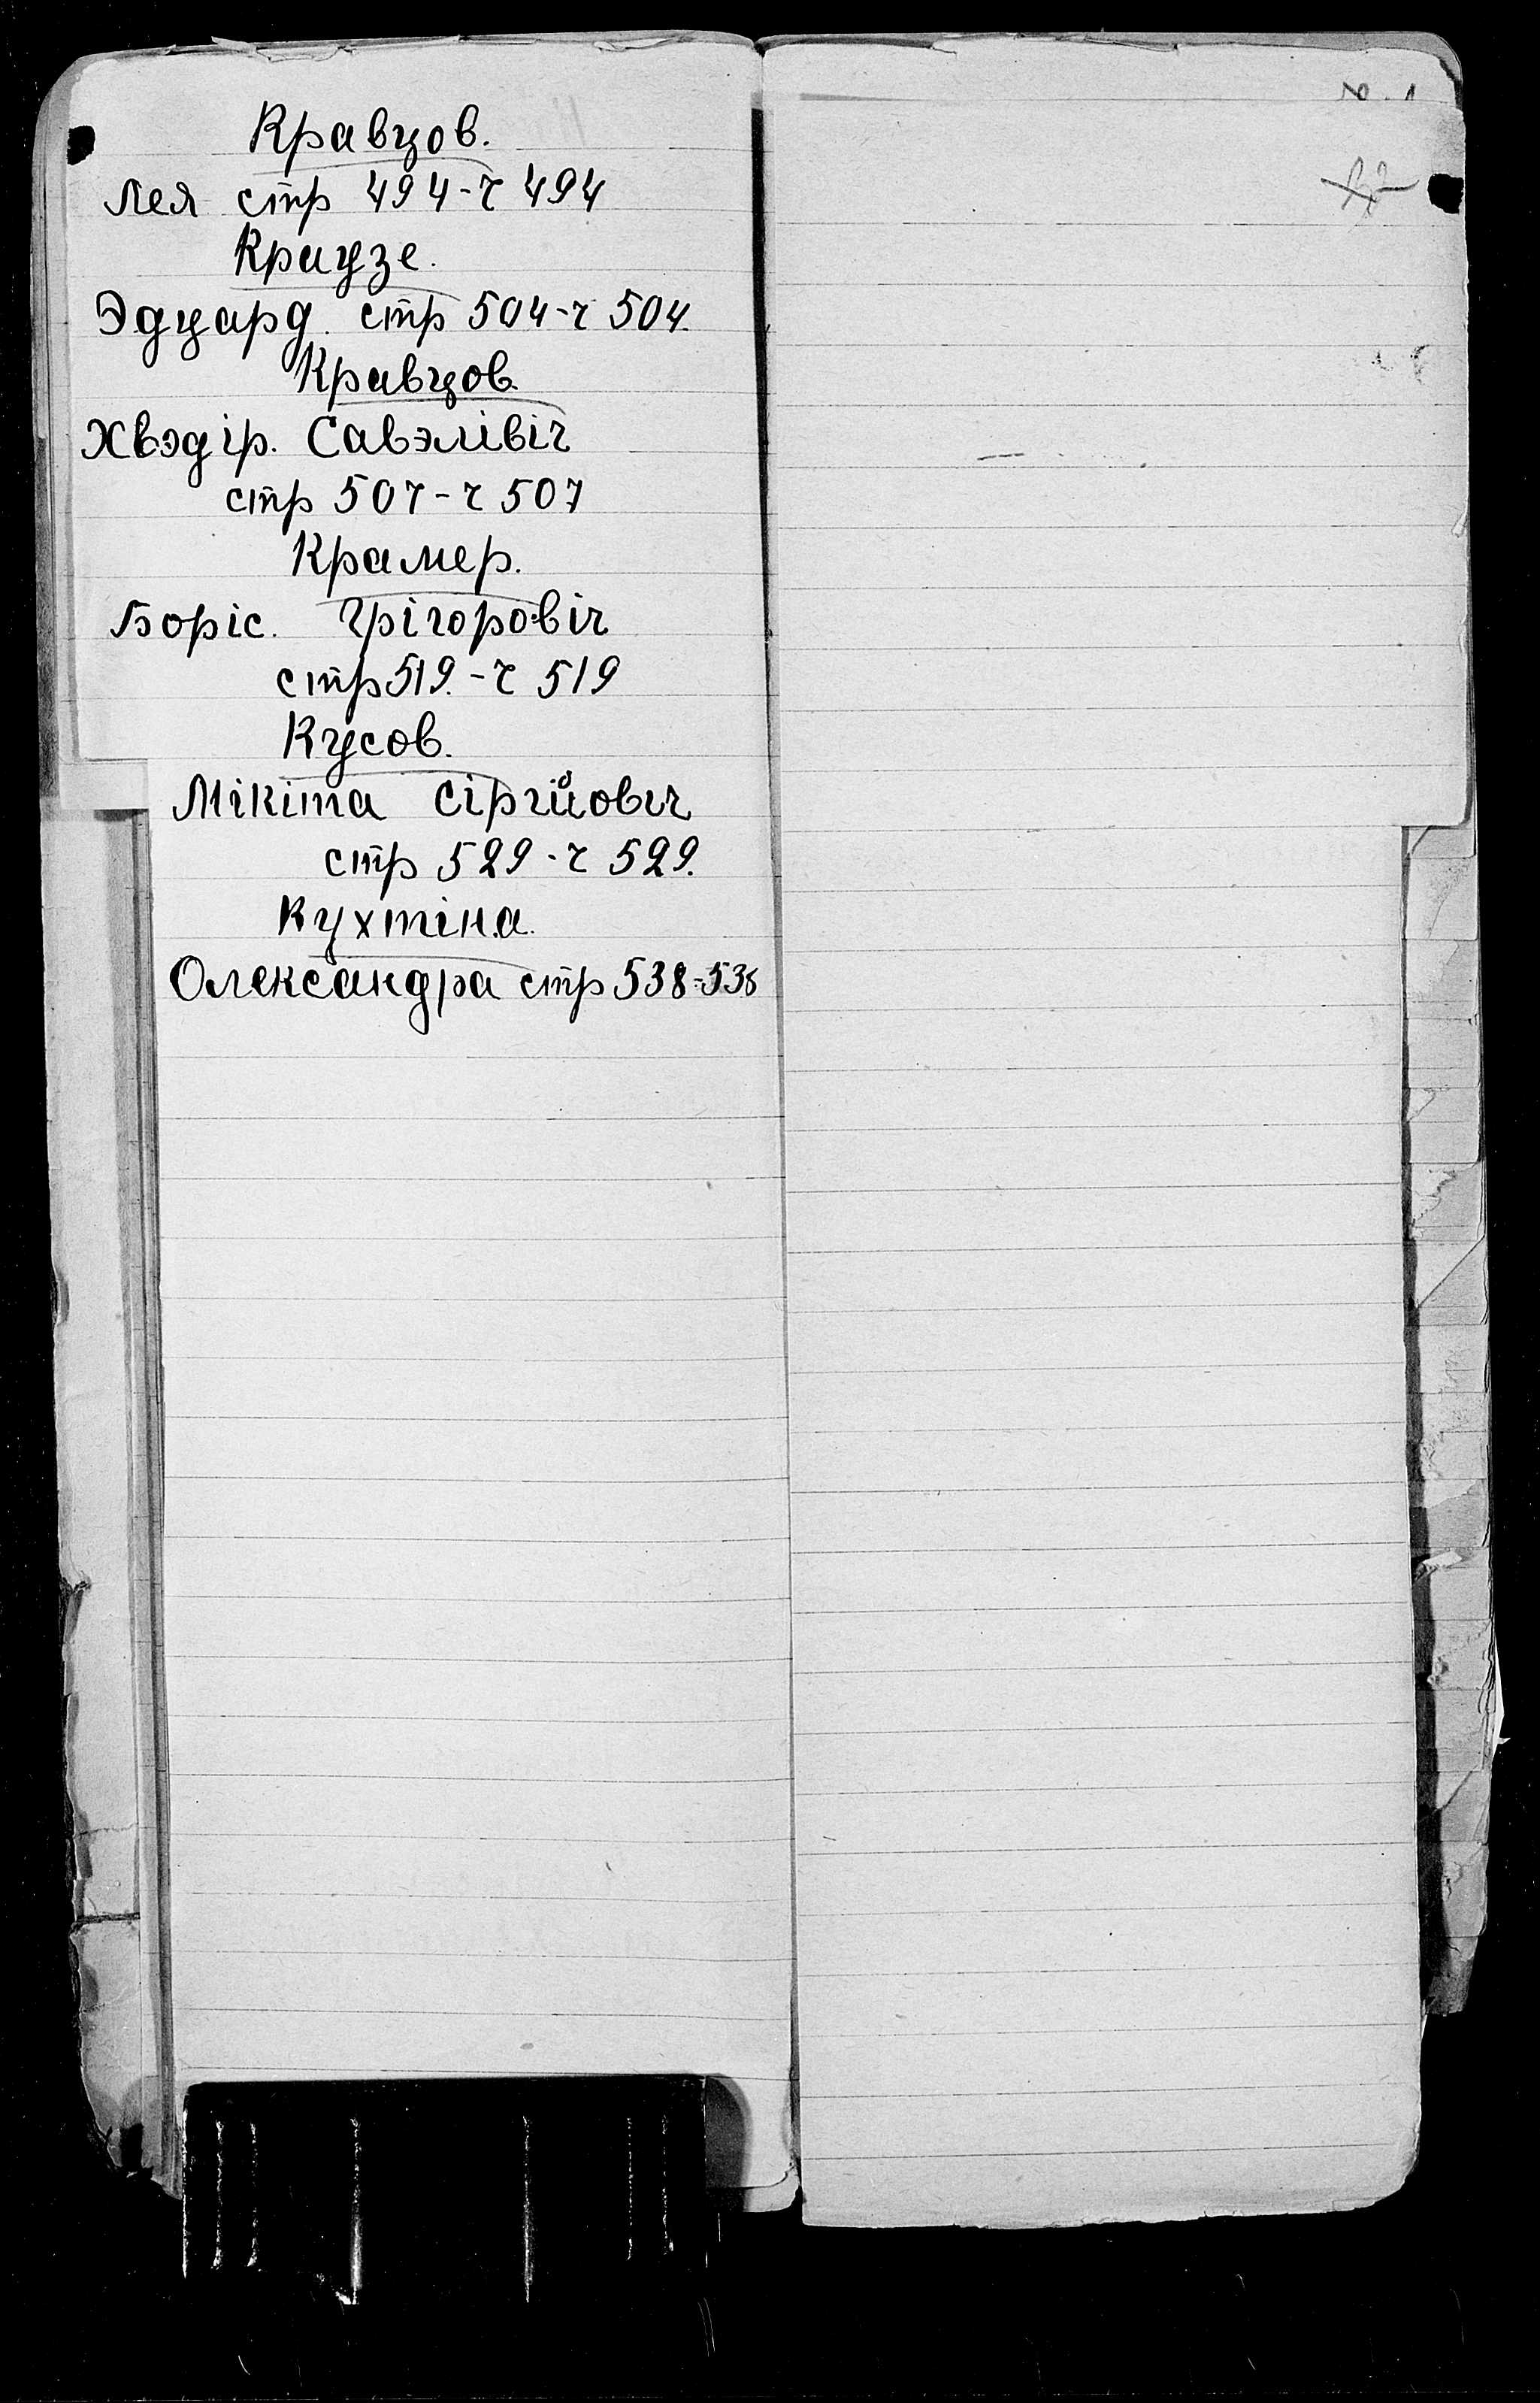 Кравцов.
Лея стр 494-ч 494
Краузе.
Эдуард. стр 504-ч 504.
Кравцов.
Хвэдір. Савэлівіч
стр 507-ч 507
Крамер.
Боріс. Грігоровіч
стр 519.-ч 519
Кусов.
Мікіта Сіргійовіч
стр 529-ч 529.
Кухтіна.
Олександра стр 538-538